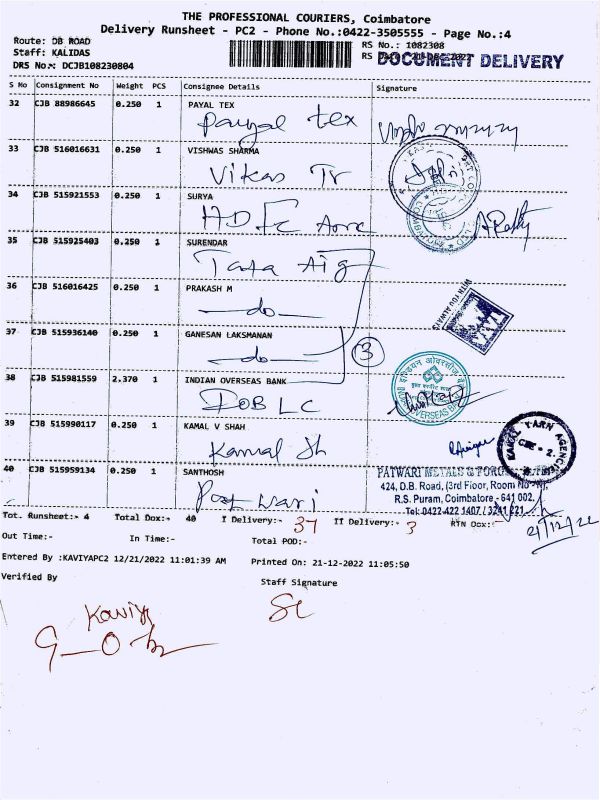 THE PROFESSIONAL COURIERS, Coimbatore
Delivery Runsheet - PC2 - Phone No.:0422-3505555 - Page No.:4
Route: DB ROAD
RS No.: 1082308
Staff: KALIDAS
DOCUMENT DELIVERY
DRS No.: DCJB108230804
S No Consignment No Weight PCS Consignee Details Signature
32 CJB 88986645 0.250 1 PAYAL TEX
Payal tex
33 CJB 516016631 0.250 1 VISHWAS SHARMA
Vikas Tr
34 CJB 515921553 0.250 1 SURYA
HDFC
35 CJB 515925403 0.250 1 SURENDAR
Tata Aig
36 CJB 516016425 0.250 1 PRAKASH M
-do-
WITH YOU ALWAYS
37 CJB 515936140 0.250 1 GANESAN LAKSMANAN
-do-
3
38 CJB 515981559 2.370 1 INDIAN OVERSEAS BANK
IOB LC
39 CJB 515990117 0.250 1 KAMAL V SHAH
Kamal Sh
KAMAL YARN AGENCIES
40 CJB 515959134 0.250 1 SANTHOSH
PATWARI METALS & FOROU
424, D.B. Road, (3rd Floor, Room No
R.S. Puram, Coimbatore - 641 002.
Tel: 0422-422 1407 / 3241 221
Tot. Runsheet:- 4 Total Dox:- 40 I Delivery:- 37 II Delivery:- 3 RTN Dox:-
21/12/22
Out Time:- In Time:- Total POD:-
Entered By :KAVIYAPC2 12/21/2022 11:01:39 AM Printed On: 21-12-2022 11:05:50
Verified By Staff Signature
Kaviya